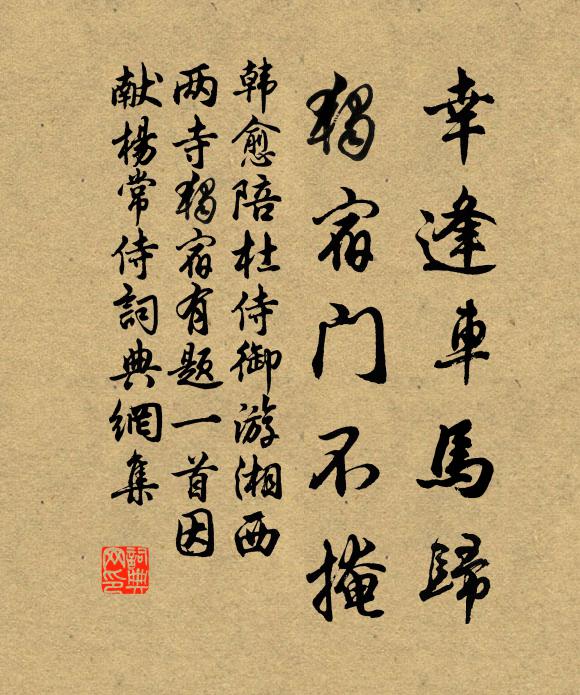 幸逢車馬歸
獨宿門不掩
韩愈陪杜侍御游湘西
两寺獨宿有题一首因
献楊常侍詞典網集
詞典网印